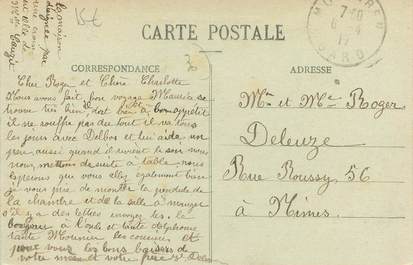 15€
CARTE POSTALE
CORRESPONDANCE
ADRESSE
GARD
Cher Roger et Chère Charlotte
Nous avons fait bon voyage Maurice se
trouve très bien dort bien a bon appétit
il ne souffre pas du tout il va tous
les jours avec Delbos et lui aide un
peu aussi quand il vient le soir nous
nous mettons de suite à table nous
espérons que vous allez également bien
je vous prie de monter la pendule de
la chambre et de la salle à manger
s'il y a des lettres envoyez les le
bonjour à l'oncle et tante Delphine
tante Mounier les cousines et
pour vous les bons baisers de
votre mère et votre père
Mr et Mme Roger
Deleuze
Rue Roussy 56
à Nîmes
la maison